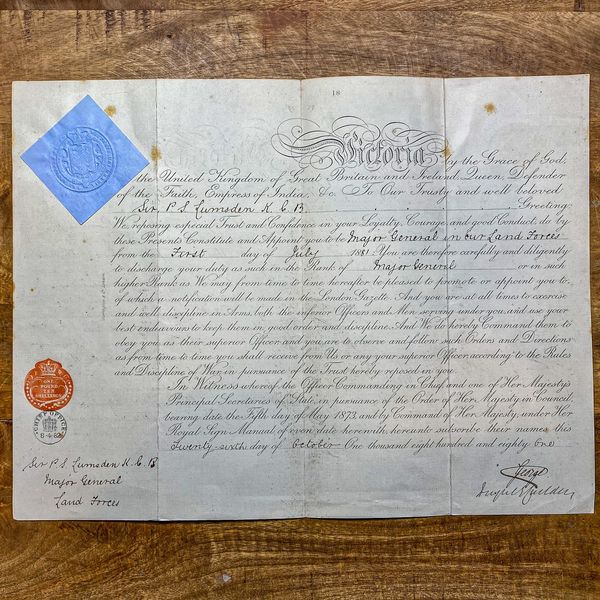 18
Victoria by the Grace of God,
of the United Kingdom of Great Britain and Ireland, Queen, Defender
of the Faith, Empress of India, &c. To Our Trusty and well beloved
Sir P. S. Lumsden K. C. B. Greeting:
We, reposing especial Trust and Confidence in your Loyalty, Courage, and good Conduct, do by
these Presents Constitute and Appoint you to be Major General in our Land Forces
from the First day of July 1881. You are therefore carefully and diligently
to discharge your duty as such in the Rank of Major General or in such
higher Rank as We may from time to time hereafter be pleased to promote or appoint you to,
of which a notification will be made in the London Gazette. And you are at all times to exercise
and well discipline in Arms, both the inferior Officers and Men serving under you, and use your
best endeavours to keep them in good order and discipline. And We do hereby Command them to
obey you as their superior Officer and you to observe and follow such Orders and Directions
as from time to time you shall receive from Us or any your superior Officer, according to the Rules
and Discipline of War, in pursuance of the Trust hereby reposed in you.
In Witness whereof the Officer Commanding in Chief and one of Her Majesty's
Principal Secretaries of State, in pursuance of the Order of Her Majesty in Council,
bearing date the Fifth day of May 1873, and by Command of Her Majesty under Her
Royal Sign Manual of even date herewith, hereunto subscribe their names this
Twenty sixth day of October One thousand eight hundred and eighty One
ONE
POUND
TEN
SHILLINGS
CHIEF OFFICE
6-4-82
Sir P. S. Lumsden K. C. B
Major General
Land Forces
George